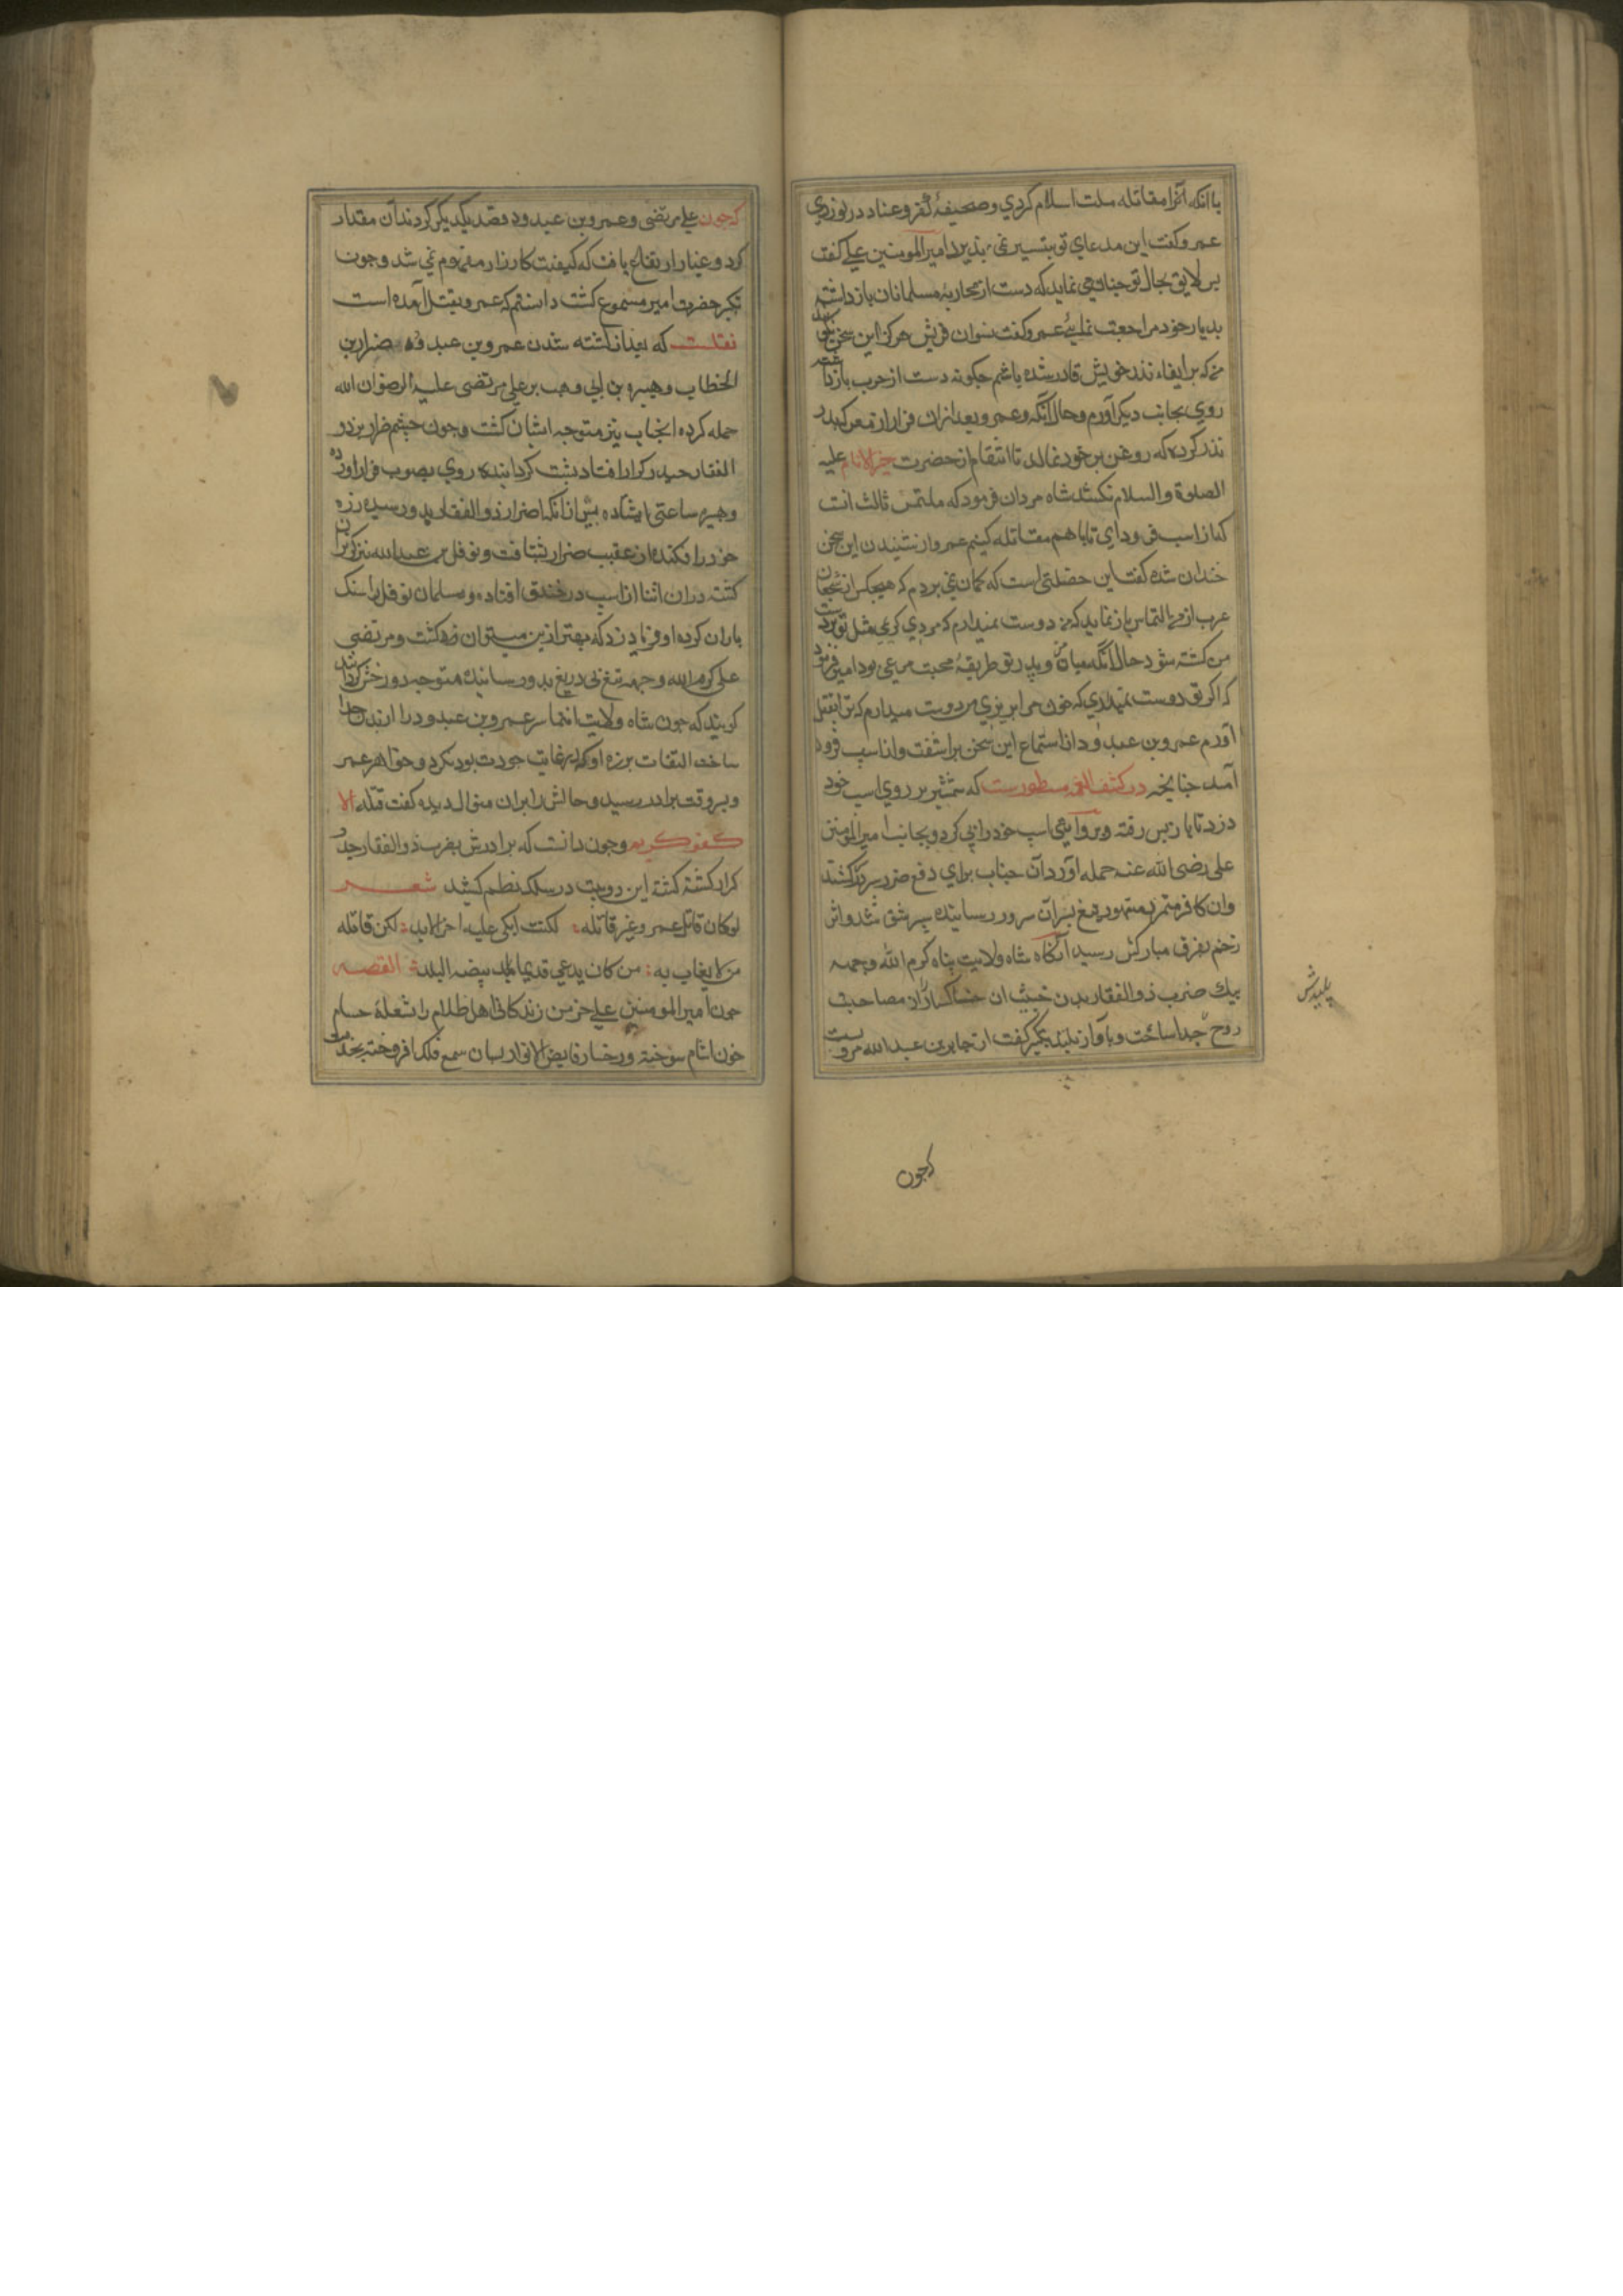 با انکه آنرا مقاتله ملت اسلام کردي وصحیفهٔ کفر و عناد در نوردي
عمرو کفت این مدعاي تو بتیسیر نمی پذیرد امیرالمومنین علی کفت
بس لایق بحال تو جنان می نماید که دست از محاربهٔ مسلمانان بازداشته
بدیار خود مراجعت نمایئ عمرو کفت نسوان قریش هرکز این سخن نکویند
من که بر ایفاء نذر خویش قادر شده باشم جکونه دست از حرب بازداشته
روي بجانب دیکر آورم وحال آنکه عمرو بعد از ان فرار از معرکه بدر
نذر کرده که روغن بر خود نمالد تا انتقام از حضرت خیرالانام علیه
الصلوة والسلام نکشد شاه مردان فرمود که ملتمس ثالث انست
که از اسب فرود اي تا با هم مقاتله کنیم عمرو از شنیدن این سخن
خندان شده کفت این خصلتی است که کمان نمی بردم که هیجکس از شجعان
عرب از من التماس باز نماید که من دوست نمیدارم که مردي کریم مثل تو بردست
من کشته شود حال آنکه میان من و پدر تو طریقهٔ محبت مرعی بود امیر فرمود
که اکر تو دوست نمیداري که خون مرا بریزي من دوست میدارم که ترا بقتل
آورم عمرو بن عبد ود از استماع این سخن براشفت و از اسب فرود
آمد جنانجه در کشف الغمه مسطورست که شمشیر بر روي اسب خود
زد تا باز پس رفته و بروایتی اسب خود را پی کرد و بجانب امیرالمومنین
علی رضی الله عنه حمله آورد آن جناب براي دفع ضرر سپر در سر کشید
وان کافر متمرد متهور تیغ بر آن سرور رسانیده سپر شق شد و اثر
زخم بفرق مبارکش رسید آنکاه شاه ولایت پناه کرم الله وجهه
بیك ضرب ذوالفقار بدن خبیث ان خاکسار را از مصاحبت
روح جدا ساخت و باواز بلند تکبیر کفت از جابر بن عبد الله مرویست
پلیدش
کجون
کجون علی مرتضی و عمرو بن عبد ود قصد یکدیکر کردند آن مقدار
کرد و غبار ارتفاع یافت که کیفیت کارزار مفهوم نمی شد و جون
تکبیر حضرت امیر مسموع کشت دانستم که عمرو بقتل آمده است
نقلست که بعد از کشته شدن عمرو بن عبد ود ضرار بن
الخطاب و هبیره بن ابی وهب بر علی مرتضی علیه الرضوان الله
حمله کرده انجناب نیز متوجه ایشان کشت و جون جشم ضرار بر ذو
الفقار حیدر کرار افتاد پشت کردانیده روي بصوب فرار آورده
وهبیره ساعتی ایستاده بیش از آنکه اضرار ذوالفقار بدو رسید زره
خود را فکنده از عقب ضرار شتافت و نوفل بن عبد الله نیز کریزان
کشته در ان اثنا از اسب در خندق افتاده ومسلمانان نوفل را سنک
باران کرده او فریاد زد که بهتر ازین میتوان کشت و مرتضی
علی کرم الله وجهه تیغ بی دریغ بدو رسانیده متوجه دوزخش کردانید
کویند که جون شاه ولایت انتما سر عمرو بن عبد ود را از بدن جدا
ساخت التفات بزره او که در غایت جودت بود نکرد و خواهر عمر
و بر وقت برادر رسید و حالش را بران منوال دیده کفت قتله الا
کفو کریم و جون دانست که برادرش بضرب ذوالفقار حیدر
کرار کشته کشته این دو بیت در سلک نظم کشید شعر
لوکان قاتل عمرو غیر قاتله لکنت ابکی علیه اخر الابد لکن قاتله
من لا یعاب به من کان یدعی قدیما بیضه البلد القصه
جون امیرالمومنین علی خرمن زندکانی اهل ظلام را بشعلهٔ حسام
خون اشام سوخته و رخسار فایض الانوار بسان شمع فلک افروخته بخدمت